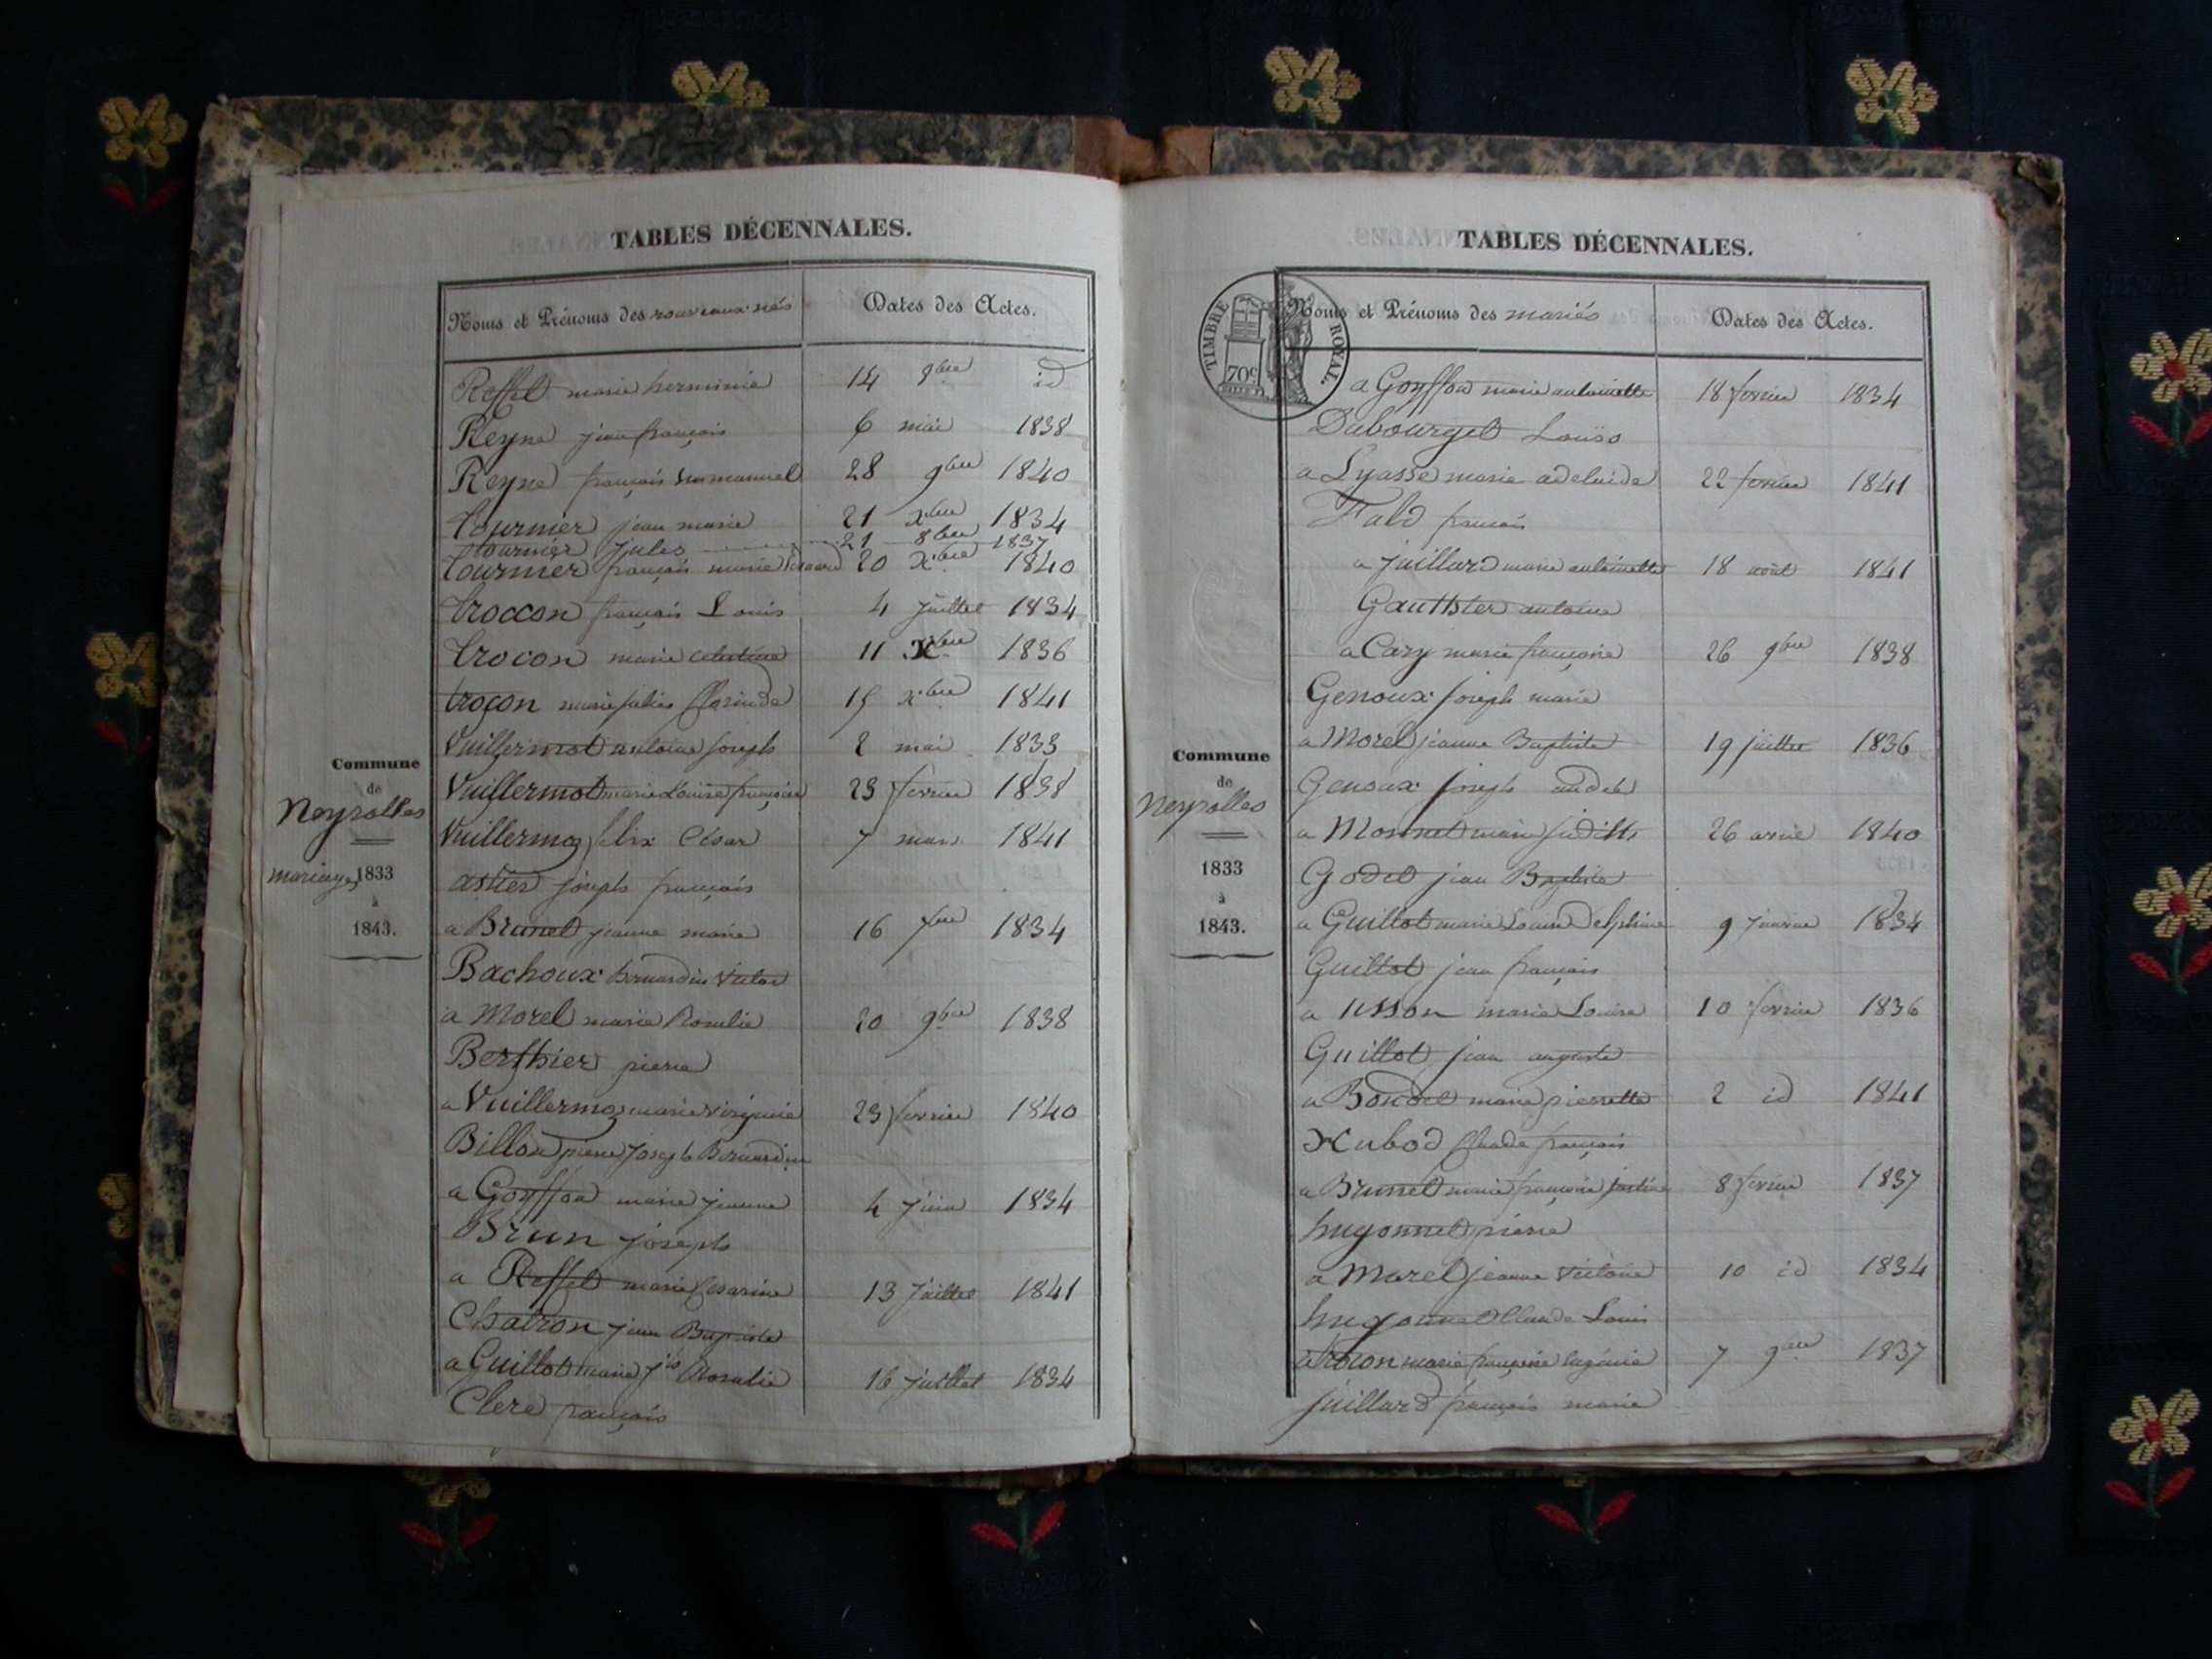 TABLES DÉCENNALES.
Noms et Prénoms des nouveaux nés Dates des Actes.
Reffet marie herminie 14 9bre id
Reyne jean françois 6 mai 1838
Reyne françois Emmanuel 28 9bre 1840
tournier jean marie 21 xbre 1834
tournier jules 21 8bre 1837
tournier françois marie 20 xbre 1840
troccon françois Louis 4 juillet 1834
trocon marie celestine 11 Xbre 1836
troçon marie julie florinde 15 xbre 1841
Vuillermot antoine joseph 2 mai 1833
Vuillermot marie Louise françoise 23 fevrier 1838
Vuillermoz felix César 7 mars 1841
Commune
de
Neyrolles
mariages 1833
à
1843.
astier joseph françois
a Brunet jeanne marie 16 1834
Bachoux bernardin Victor
a Morel marie Rosalie 20 9bre 1838
Berthier pierre
a Vuillermoz marie virginie 23 fevrier 1840
Billon pierre joseph Bernardin
a Goyffon marie jeanne 4 juin 1834
Brun joseph
a Reffet marie Cesarine 13 juillet 1841
Chatron jean Baptiste
a Guillot marie Rosalie 16 juillet 1834
Clerc françois
TABLES DÉCENNALES.
TIMBRE ROYAL.
70c
Noms et Prénoms des mariés Dates des Actes.
a Goyffon marie antoinette 18 fevrier 1834
Dubourget Louis
a Lyasse marie adelaide 22 fevrier 1841
Fabd françois
a juillard marie antoinette 18 août 1841
Gauthier antoine
a Cary marie françoise 26 9bre 1838
Genoux joseph marie
a Morel jeanne Baptiste 19 juillet 1836
Genoux joseph andré
a Monnet marie judith 26 avril 1840
Commune
de
Neyrolles
1833
à
1843.
Godet jean Baptiste
a Guillot marie Louise delphine 9 janvier 1834
Guillot jean françois
a usson marie Louise 10 fevrier 1836
Guillot jean auguste
a Bondet marie pierrette 2 id 1841
Hubod Claude françois
a Brunet marie françoise justine 8 fevrier 1837
hugonnet pierre
a Morel jeanne victoire 10 id 1834
hugonnet Claude Louis
a trocon marie françoise Eugénie 7 9bre 1837
juillard françois marie